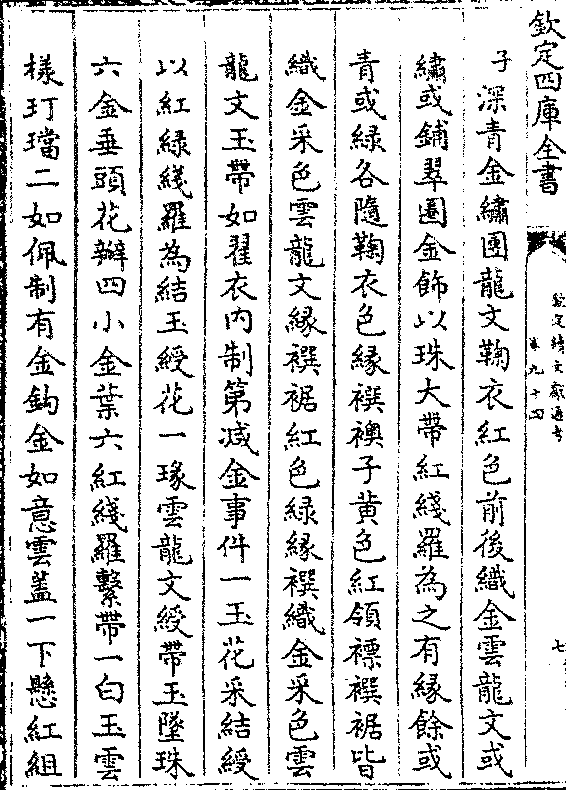 欽定四庫全書
欽定續文獻通考
卷九十四
七
子深青金繡團龍文鞠衣紅色前後織金雲龍文或
繡或鋪翠圈金飾以珠大帶紅綫羅為之有緣餘或
青或綠各隨鞠衣色緣襈襖子黃色紅領褾襈裾皆
織金采色雲龍文緣襈裾紅色綠緣襈織金采色雲
龍文玉帶如翟衣内制第減金事件一玉花采結綬
以紅綠綫羅為結玉綬花一瑑雲龍文綬帶玉墜珠
六金垂頭花瓣四小金葉六紅綫羅繫帶一白玉雲
樣玎璫二如佩制有金鈎金如意雲葢一下懸紅組